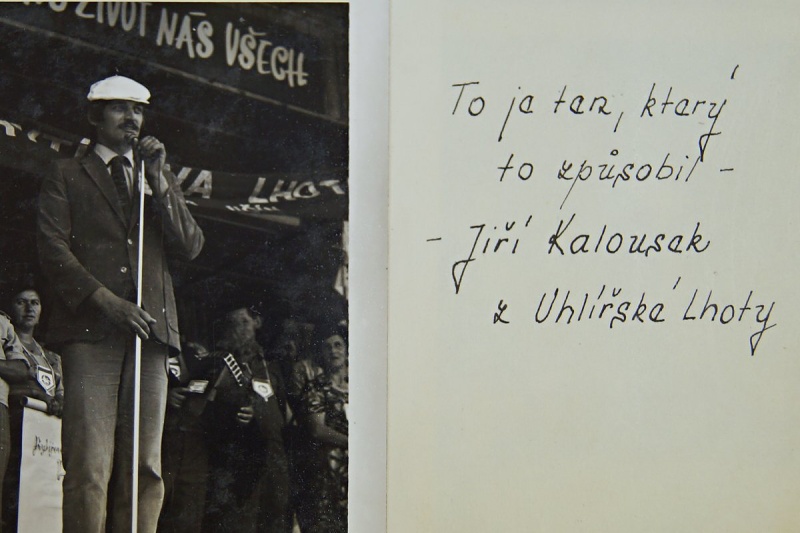 ŽIVOT NÁS VŠECH
LHOT
To je ten, který
to způsobil -
- Jiří Kalousek
z Uhlířské Lhoty